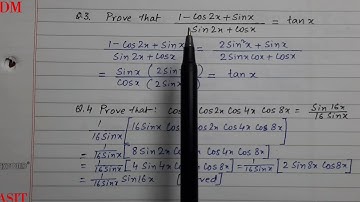 DM
Q.3. Prove that (1-Cos2x+Sinx)/(Sin2x+Cosx) = tanx
(1-Cos2x+Sinx)/(Sin2x+Cosx) = (2Sin²x+Sinx)/(2Sinx Cosx+Cosx)
= Sinx(2Sin / Cosx(2Sin = tanx
Q.4 Prove that: Cosx Cos2x Cos4x Cos8x = Sin16x/16Sinx
1/16Sinx [16Sinx Cosx Cos2x Cos4x Cos8x]
= 1/16Sinx [8Sin2x Cos2x Cos4x Cos8x]
= 1/16Sinx [4Sin4x Cos8x] = 1/16Sinx [2Sin8x Cos8x]
= 1/16Sinx Sin16x (Proved)
ASIT